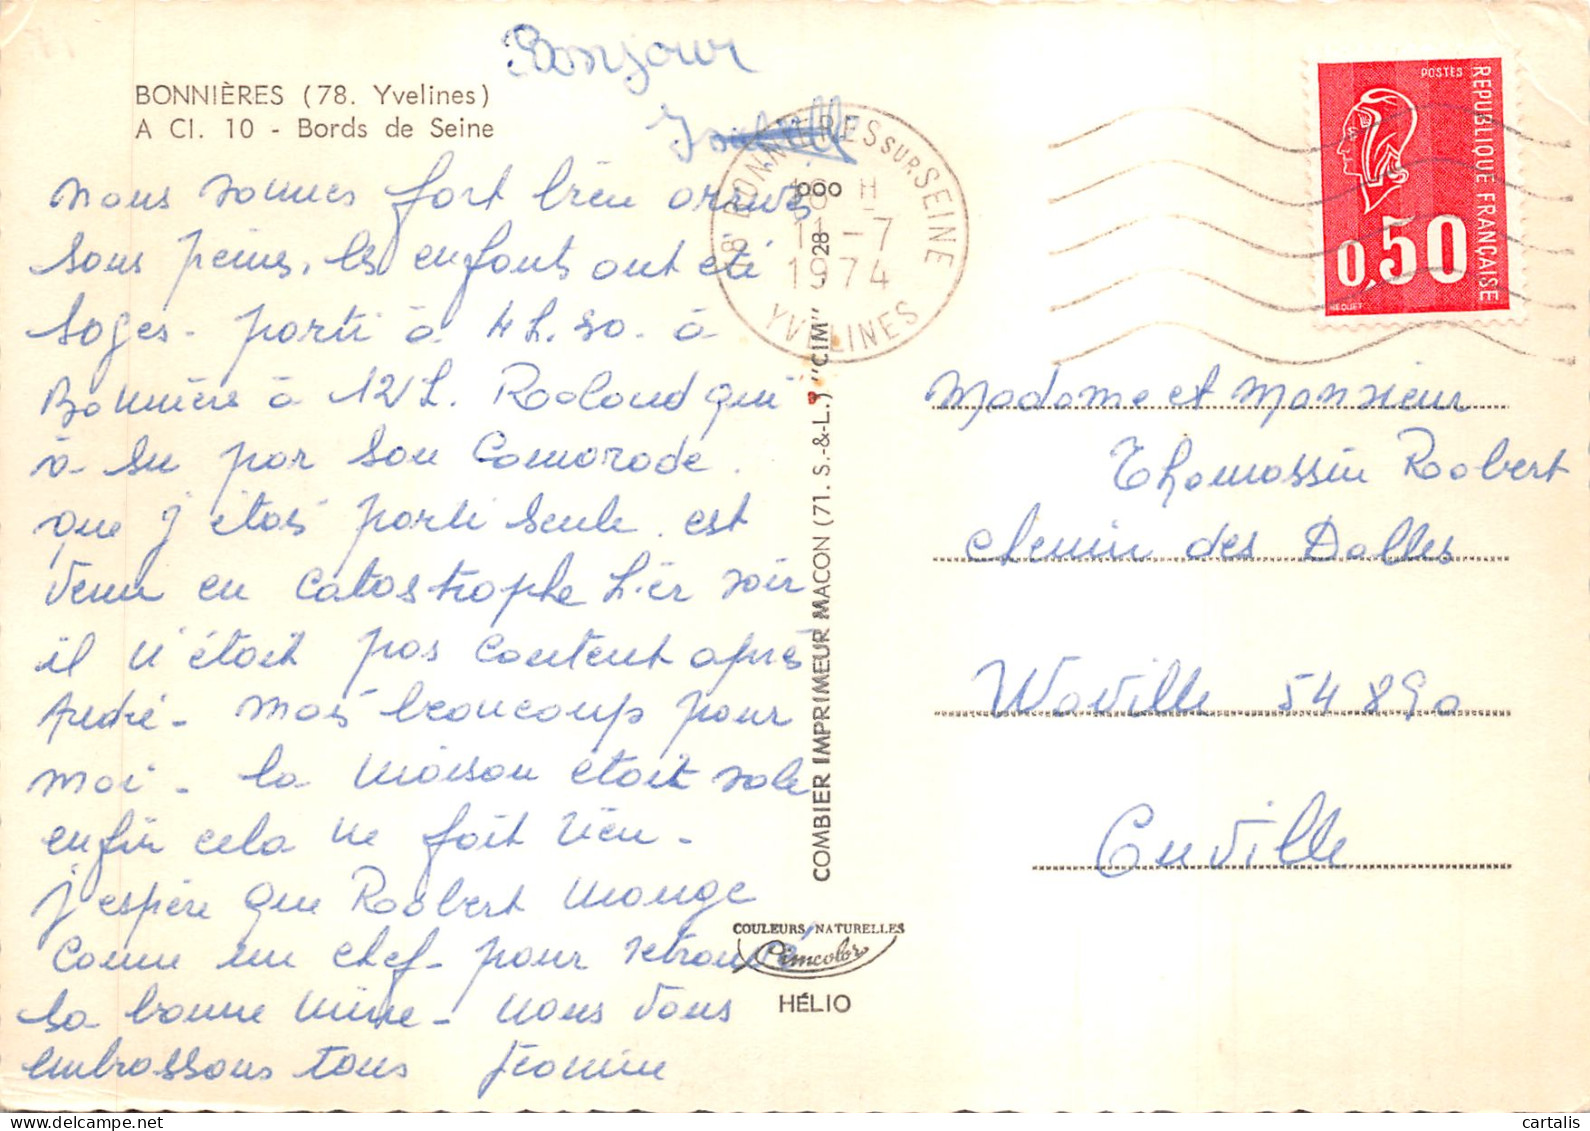 Bonjour
BONNIÈRES (78. Yvelines)
A Cl. 10 - Bords de Seine
nous sommes fort bien arrivés
sous peine, les enfants ont été
sages - parti à 4 h. 30. à
Bonnière à 12 h. Rooland qui
à su par son Camarade.
que j'étais parti seule. est
venu en catastrophe hier soir
il n'était pas content après
André - mais beaucoup pour
moi - la maison était sale
enfin cela ne fait rien -
j'espère que Roobert mange
comme un chef - pour retrouvé
sa bonne mine - nous vous
embrassons tous Jeanine
78 BONNIERES SUR SEINE
18 H
11 -7
1974
YVELINES
COMBIER IMPRIMEUR MACON (71. S.-&-L.) "CIM" - 28 - 000
COULEURS NATURELLES
Cimcolor
HÉLIO
POSTES
REPUBLIQUE FRANÇAISE
0,50
BEQUET
Madame et Monsieur
Thomassin Roobert
chemin des Dalles
Waville 54 890
Onville
cartalis